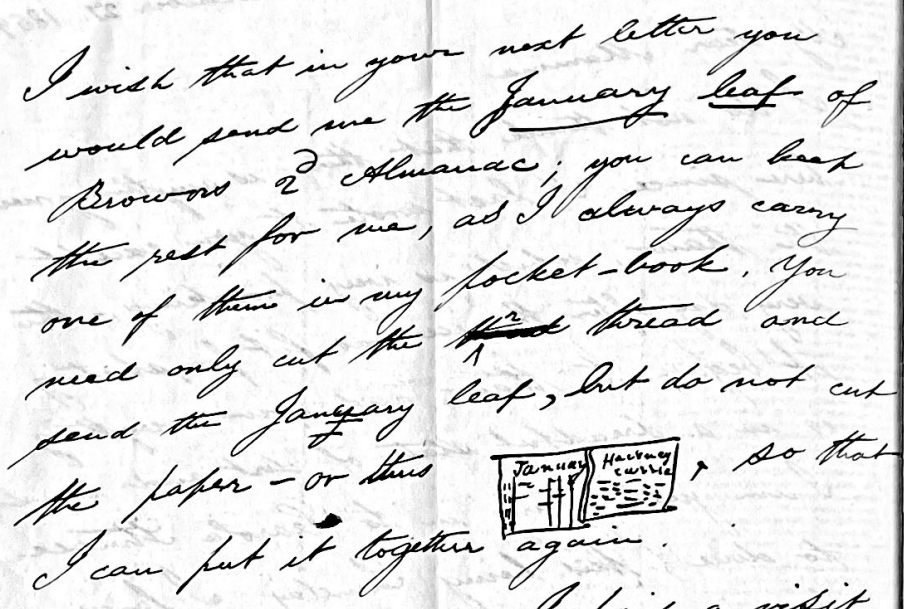 I wish that in your next letter you
would send me the January leaf of
Browors 2d Almanac; you can keep
the rest for me, as I always carry
one of them in my pocket-book. You
need only cut the thread and
send the January leaf, but do not cut
the paper – or thus January Hackney carria, so that
I can put it together again.
a visit